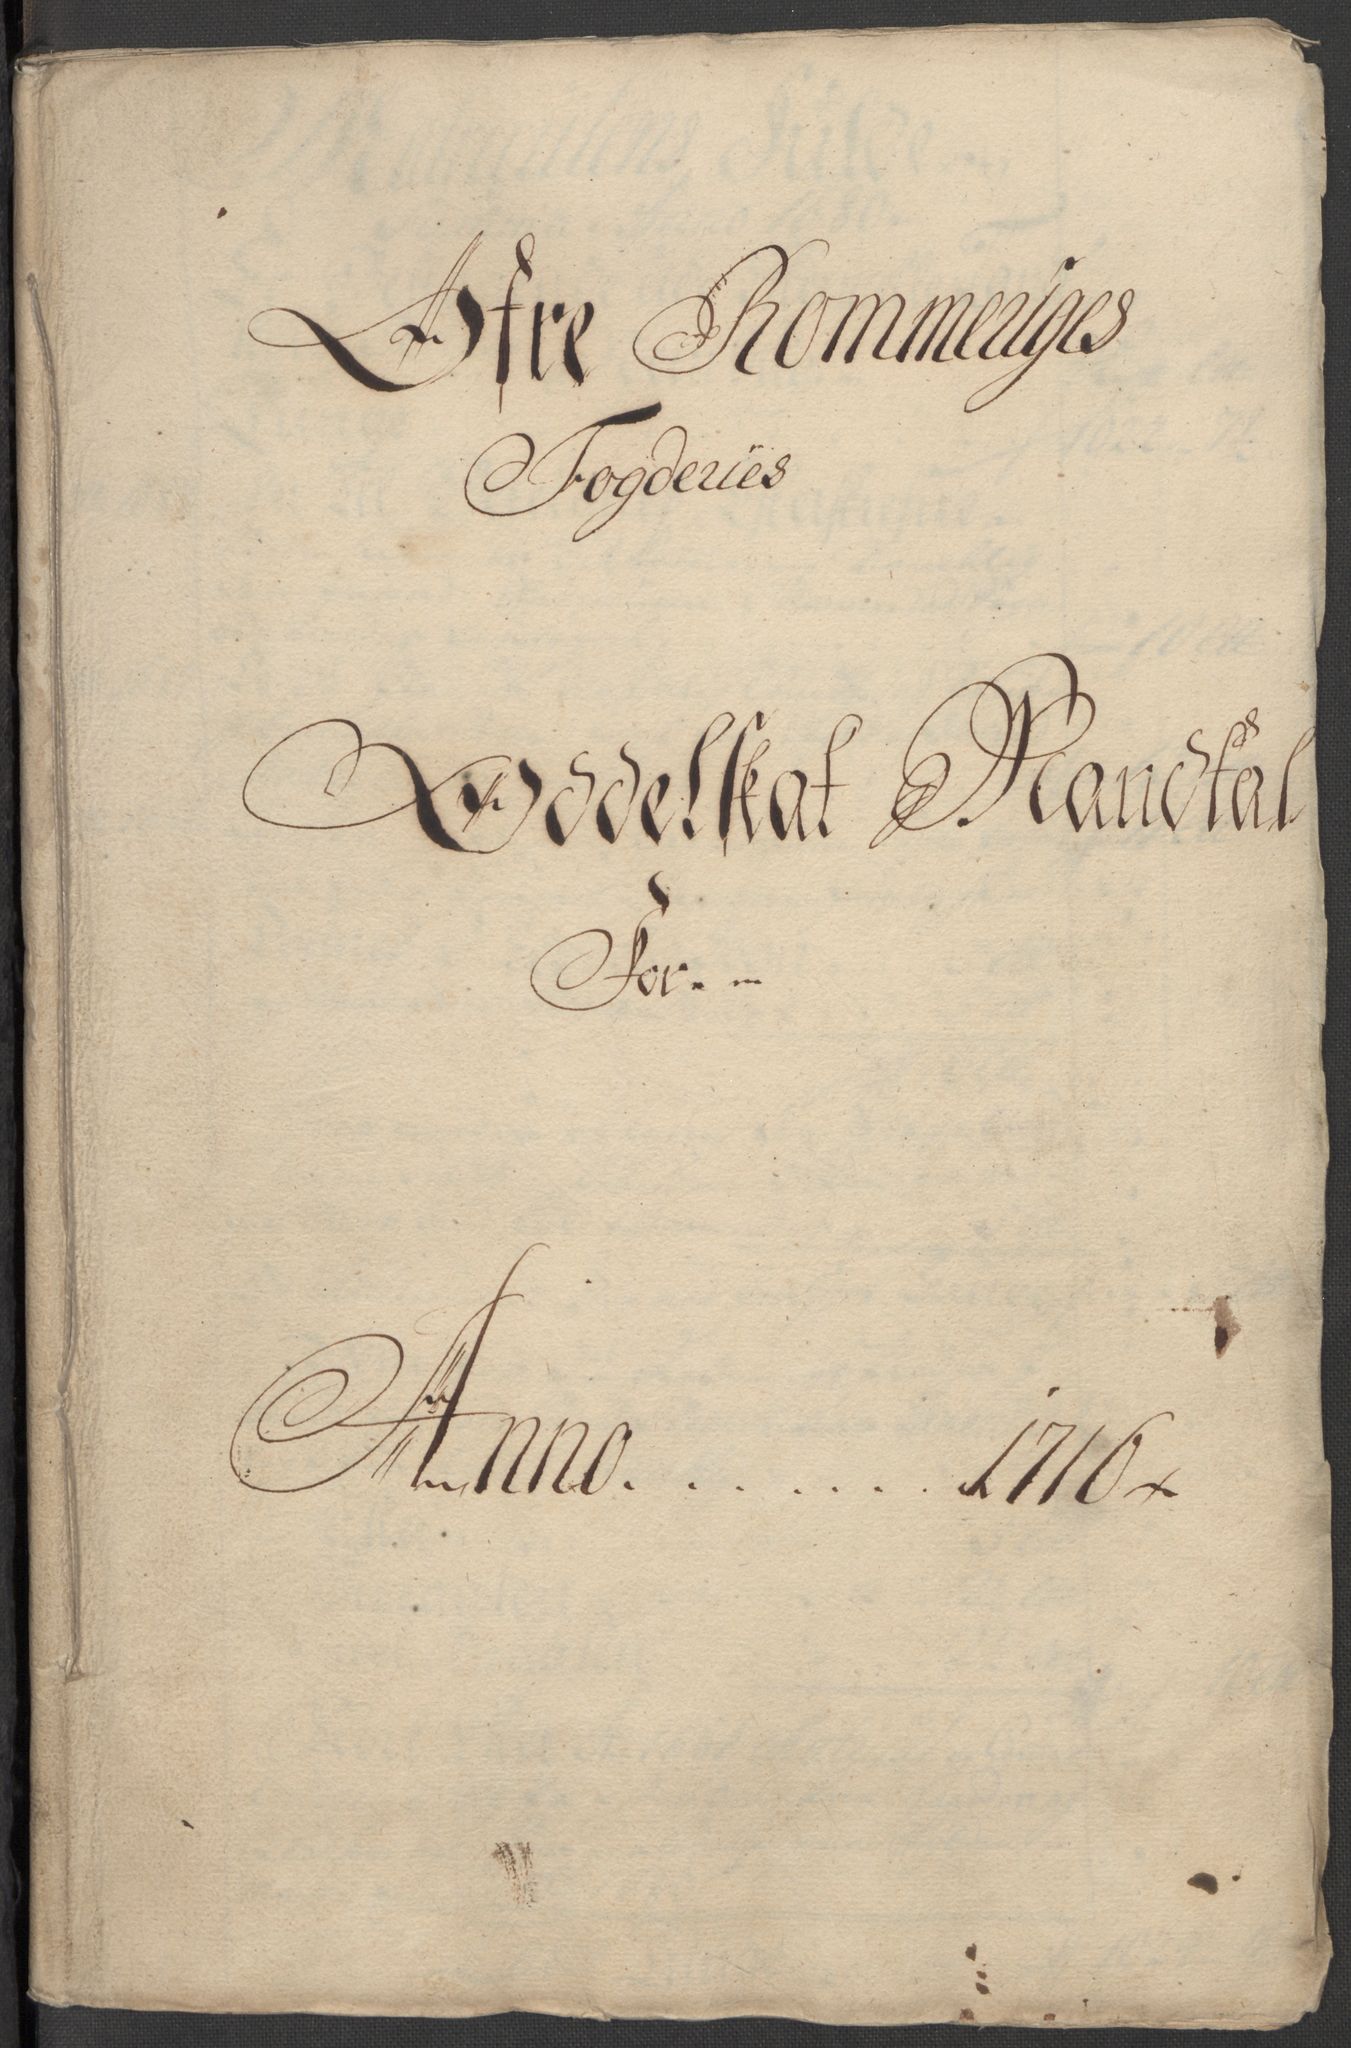 Øfre Rommeriges
Fogderies
Oddelskat Mandtal
For. -
Anno. . . . . . . 1716